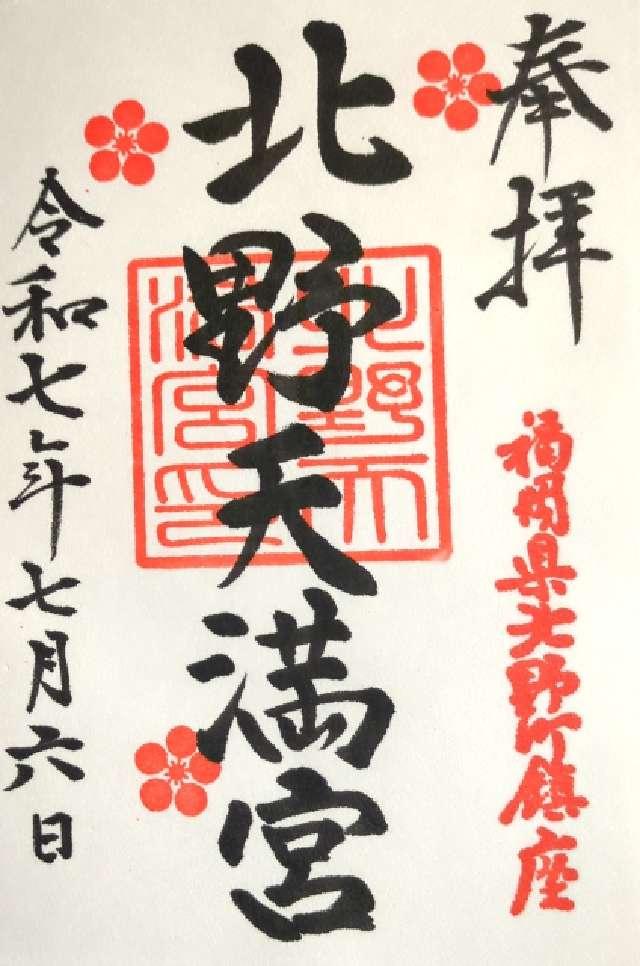 奉拝
福岡県北野町鎮座
北野天満宮
北野天満宮印
令和七年七月六日